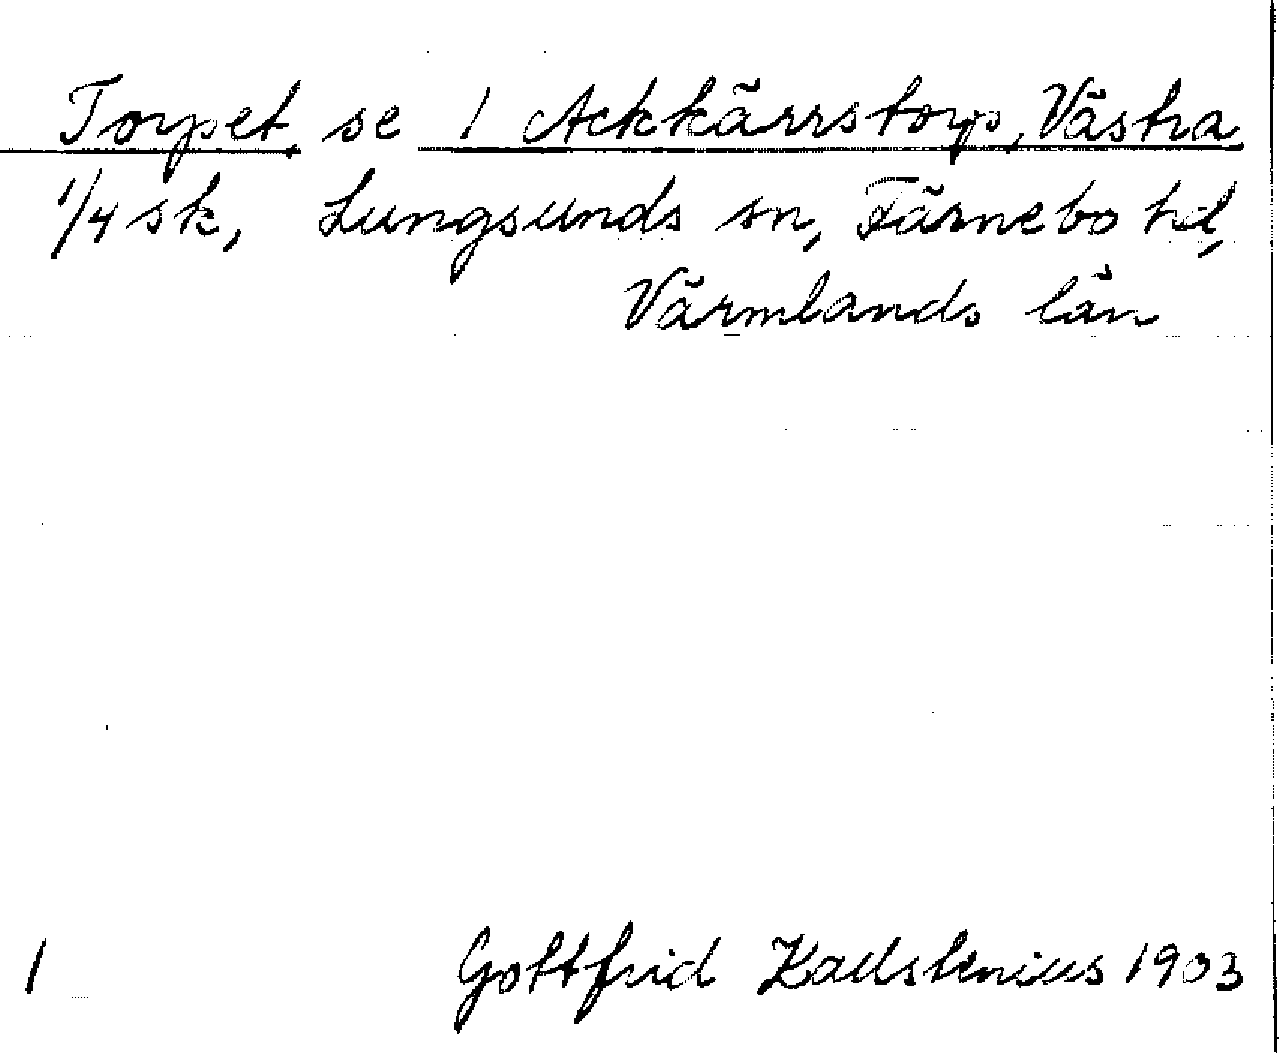 Torpet, se 1 Ackkärrstorp, Västra
1/4 sk, Lungsunds sn, Färnebo hd,
Värmlands län
1 Gottfrid Kallstenius 1903